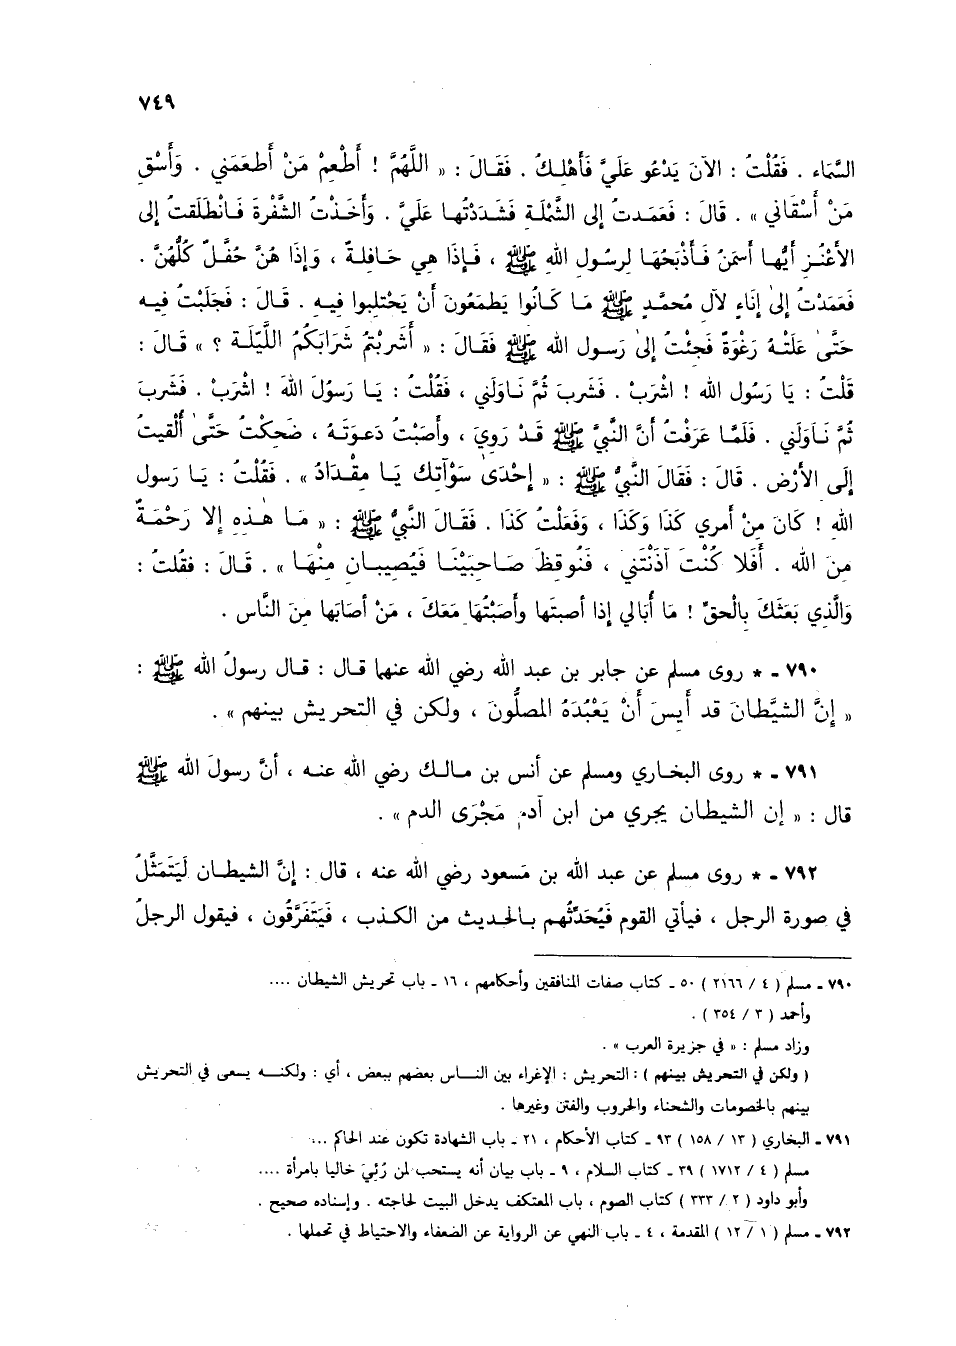 ٧٤٩
السَّمَاء . فَقُلْتُ : الآنَ يَدْعُو عَلَيَّ فَأَهْلِكُ . فَقَالَ : « اللَّهُمَّ ! أَطْعِمْ مَنْ أَطعَمَني . وَأَسْقِ
مَنْ أَسْقَاني » . قَالَ : فَعَمَدتُ إلى الشَّمْلَة فَشَدَدْتُها عَلَيَّ . وَأَخَذْتُ الشَّفْرةَ فَانْطَلَقتُ إلى
الأَعْنُز أَيُّها أَسمَنُ فَأَذْبَحُهَا لِرسُولِ اللهِ ﷺ ، فَإذَا هِي حَافِلةٌ ، وَإذَا هُنَّ حُفَّلٌ كُلُّهُنَّ .
فَعَمَدْتُ إلىٰ إنَاءٍ لآلِ مُحمَّدٍ ﷺ مَا كَانُوا يَطمَعُونَ أَنْ يَحْتلِبوا فِيهِ . قَالَ : فَحَلَبْتُ فِيه
حَتَّىٰ عَلَتْهُ رَغْوَةٌ فَجِئْتُ إلىٰ رَسول الله ﷺ فَقَالَ : « أَشَرِبْتُمْ شَرَابَكُمُ اللَّيْلَةَ ؟ » قَالَ :
قَلْتُ : يَا رَسُول الله ! اشْرَبْ . فَشَرِبَ ثُمَّ نَاوَلَني ، فَقُلْتُ : يَا رَسُولَ اللهَ ! اشْرَبْ . فَشَربَ
ثُمَّ نَاوَلَني . فَلَمَّا عَرَفْتُ أَنَّ النَّبيَّ ﷺ قَدْ رَوِيَ ، وأَصَبْتُ دَعوَتَهُ ، ضَحِكْتُ حَتَّىٰ أُلْقيتُ
إلَى الأَرْض . قَالَ : فَقَالَ النَّبيُّ ﷺ : « إحْدَىٰ سَوْآتِك يَا مِقْدَادُ » . فَقُلْتُ : يَا رَسول
الله ! كَانَ مِنْ أَمري كَذَا وَكَذَا ، وَفَعَلْتُ كَذَا . فَقَالَ النَّبيُّ ﷺ : « مَا هٰذِهِ إلا رَحْمَةٌ
مِنَ اللهِ . أَفَلا كُنْتَ آذَنْتَني ، فَنُوقِظَ صَاحِبَيْنَا فَيُصِيبانِ مِنْهَا » . قَالَ : فقُلتُ :
وَالَّذي بَعَثَكَ بِالْحقِّ ! مَا أُبَالي إذا أصبتَها وأَصَبْتُهَا مَعَكَ ، مَنْ أصَابَها مِنَ النَّاس .
٧٩٠ - * روى مسلم عن جابر بن عبد الله رضي الله عنهما قال : قال رسولُ الله ﷺ :
« إنَّ الشيَّطانَ قد أَيسَ أَنْ يَعْبُدَهُ المصلُّونَ ، ولكن في التحريش بينهم » .
٧٩١ - * روى البخاري ومسلم عن أنس بن مالك رضي الله عنه ، أنَّ رسولَ الله ﷺ
قال : « إن الشيطان يجري من ابن آدم مَجْرَى الدم » .
٧٩٢ - * روى مسلم عن عبد الله بن مَسعود رضي الله عنه ، قال : إنَّ الشيطان لَيَتَمَثَّلُ
في صورة الرجل ، فيأتي القوم فَيُحَدِّثُهم بالحديث من الكذب ، فَيَتَفَرَّقُون ، فيقول الرجلُ
٧٩٠ - مسلم ( ٤ / ٢١٦٦ ) ٥٠ - كتاب صفات المنافقين وأحكامهم ، ١٦ - باب تحريش الشيطان ....
وأحمد ( ٣ / ٣٥٤ ) .
وزاد مسلم : « في جزيرة العرب » .
( ولكن في التحريش بينهم ) : التحريش : الإغراء بين الناس بعضهم ببعض ، أي : ولكنه يسعى في التحريش
بينهم بالخصومات والشحناء والحروب والفتن وغيرها .
٧٩١ - البخاري ( ١٣ / ١٥٨ ) ٩٣ - كتاب الأحكام ، ٢١ - باب الشهادة تكون عند الحاكم ...
مسلم ( ٤ / ١٧١٢ ) ٣٩ - كتاب السلام ، ٩ - باب بيان أنه يستحب لمن رُئيَ خاليا بامرأة ....
وأبو داود ( ٢ / ٣٣٣ ) كتاب الصوم ، باب المعتكف يدخل البيت لحاجته . وإسناده صحيح .
٧٩٢ - مسلم ( ١ / ١٢ ) المقدمة ، ٤ - باب النهي عن الرواية عن الضعفاء والاحتياط في تحملها .